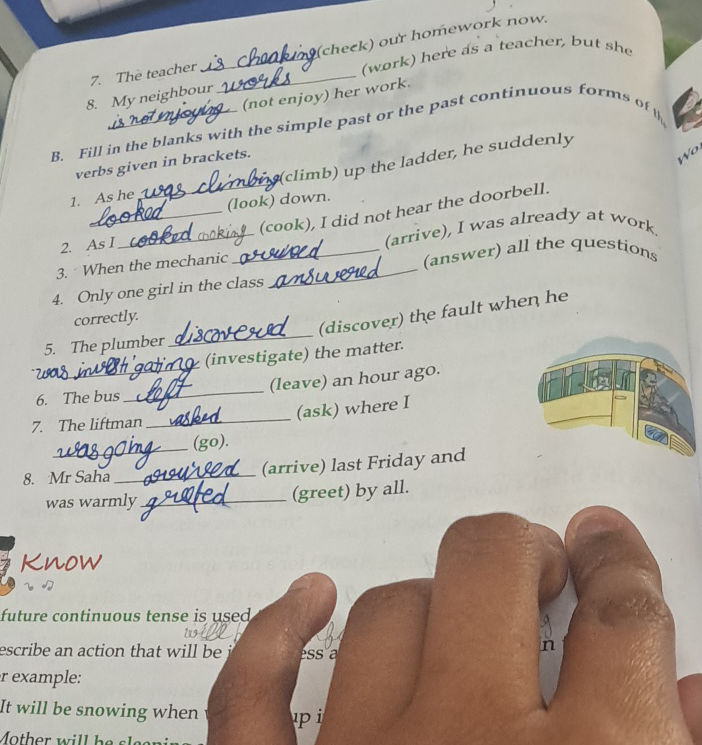 7. The teacher is cheaking (check) our homework now.
8. My neighbour works (work) here as a teacher, but she
is not enjoying (not enjoy) her work.
B. Fill in the blanks with the simple past or the past continuous forms of
verbs given in brackets.
1. As he was climbing (climb) up the ladder, he suddenly
looked (look) down.
2. As I cooked cooking (cook), I did not hear the doorbell.
3. When the mechanic arrived (arrive), I was already at work.
4. Only one girl in the class answered (answer) all the questions
correctly.
5. The plumber discovered (discover) the fault when he
was investigating (investigate) the matter.
6. The bus left (leave) an hour ago.
7. The liftman asked (ask) where I
was going (go).
8. Mr Saha arrived (arrive) last Friday and
was warmly greeted (greet) by all.
Know
future continuous tense is used
will
escribe an action that will be
r example:
It will be snowing when up i
Mother will be